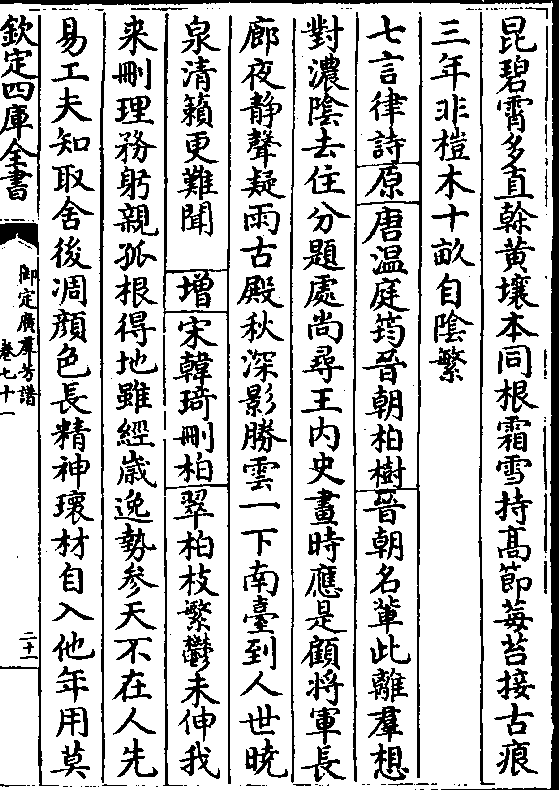 昆碧霄多直榦黄壤本同根霜雪持髙節莓苔接古痕
三年非榿木十畝自陰繁
七言律詩原唐温庭筠晉朝柏樹晉朝名輩此離羣想
對濃陰去住分題處尚尋王内史畫時應是顧将軍長
廊夜静聲疑雨古殿秋深影勝雲一下南臺到人世晓
泉清籟更難聞增宋韓琦刪柏翠柏枝繁鬱未伸我
来刪理務躬親孤根得地雖經嵗逸勢参天不在人先
易工夫知取舍後凋顔色長精神瓌材自入他年用莫
欽定四庫全書
御定廣羣芳譜
卷七十一
二十一